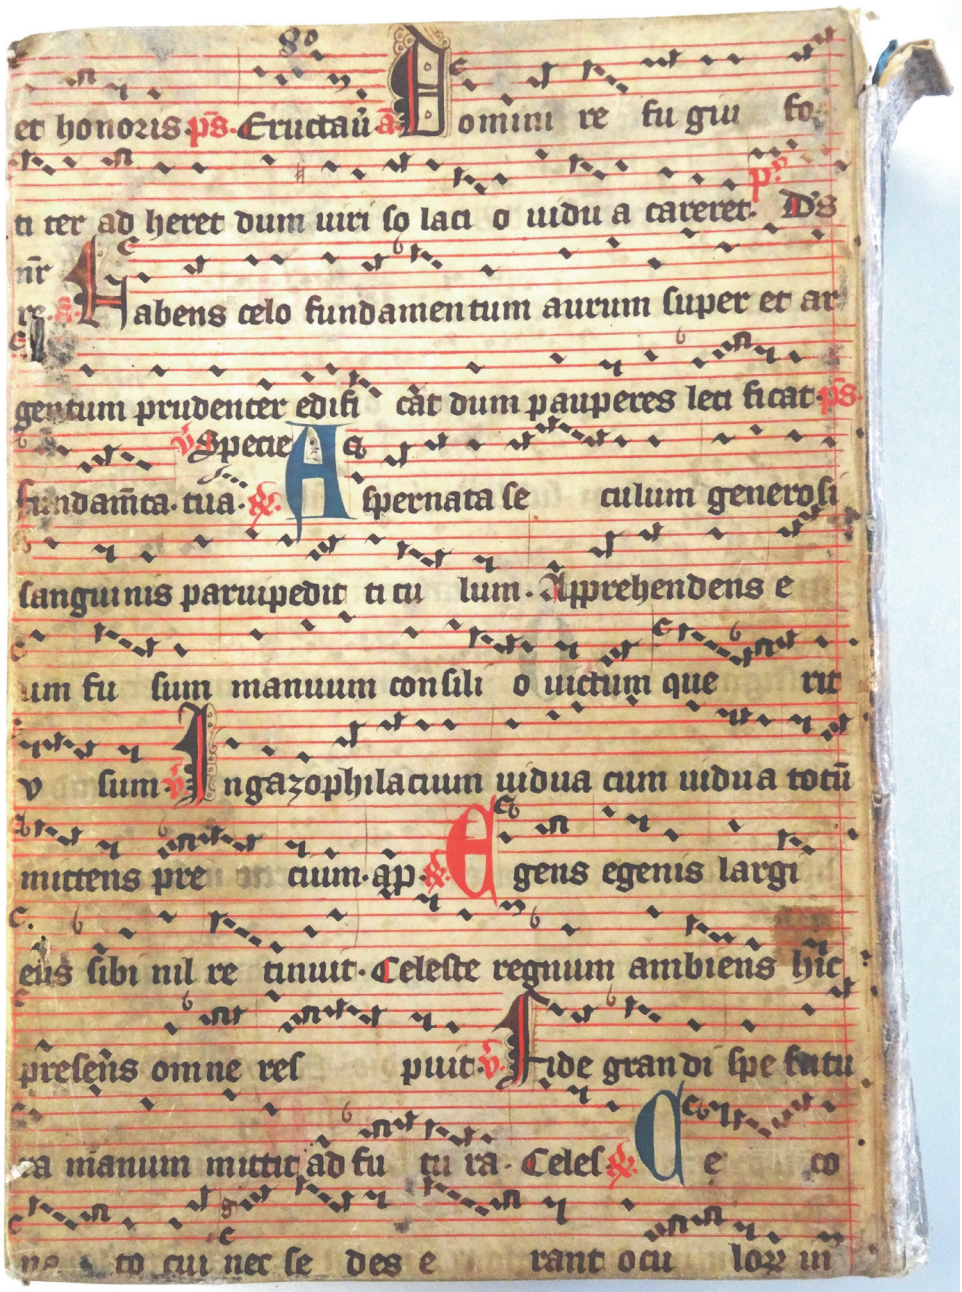 et honoris p̄s. Eructauͥ ā Domini re fu giu fo
ti ter ad heret dum uiri so laci o uidu a careret. Ds
nr̄
Habens celo fundamentum aurum super et ar
gentum prudenter edifi cāt dum pauperes leti ficat. p̄s
v̄ Specie
fundam̄ta. tua. Aspernata se culum generosi
sanguinis paruipedit ti tu lum. Apprehendens e
um fu sum manuum consili o uictum que rit
v sum v̄ In gazophilacium uidua cum uidua totū
mittens pre cium. app. Egens egenis largi
ens sibi nil re tinuit. Celeste regnum ambiens hic
presens omne res puit. v̄ Fide grandi spe futu
ra manum mittit ad fu tu ra. Celes Ce co
to cui nec se des e rant ocu lorꝝ in